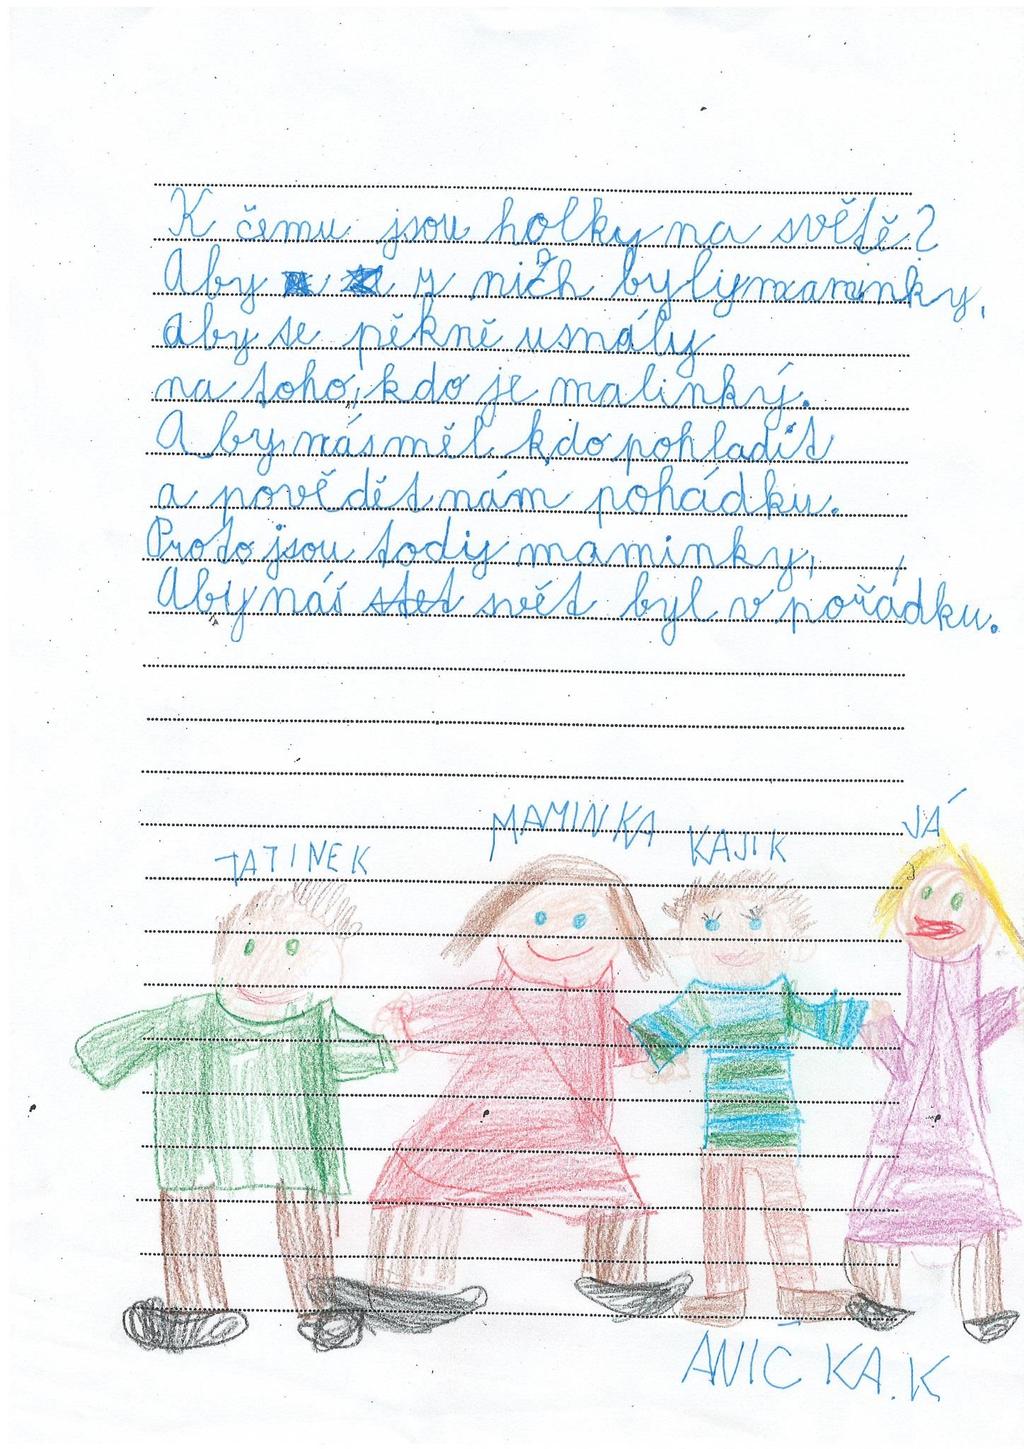 K čemu jsou holky na světě?
Aby z nich byly maminky,
aby se pěkně usmály
na toho, kdo je malinký.
Aby nás měl kdo pohladit
a povědět nám pohádku.
Proto jsou tady maminky,
Aby náš stet svět byl v pořádku.
TATINEK
MAMINKA
KAJIK
JÁ
ANIČKA.K